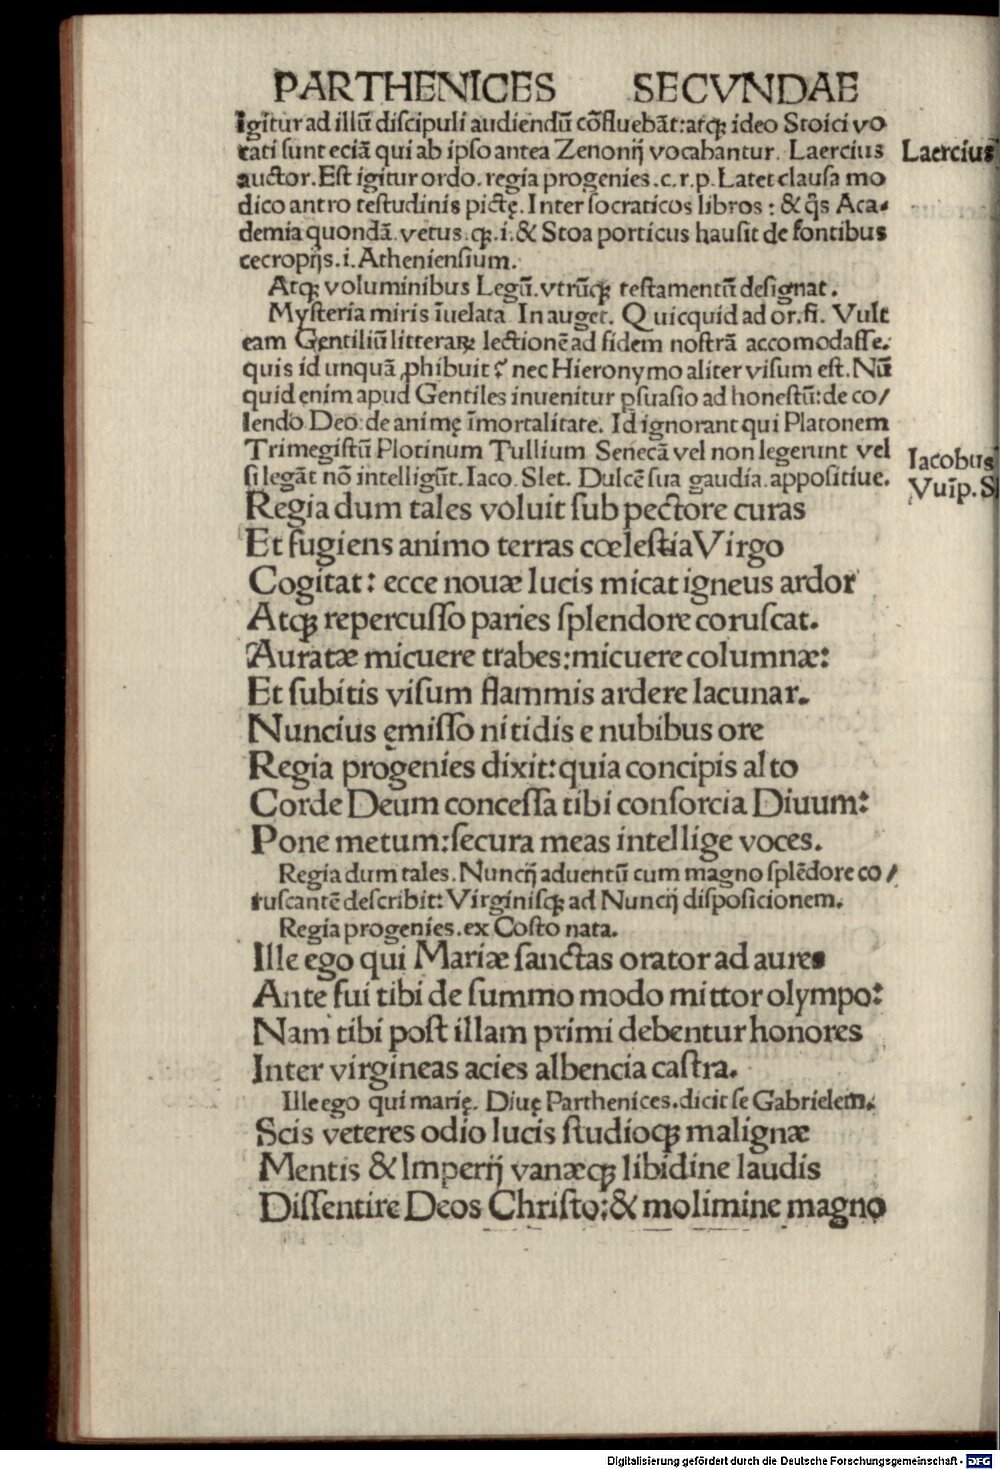 PARTHENICES SECVNDAE
Igitur ad illũ discipuli audiendũ cõfluebãt: atq̃ ideo Stoici vo
cati sunt eciã qui ab ipso antea Zenonij vocabantur. Laercius
Laercius
auctor. Est igitur ordo. regia progenies .c.r.p. Latet clausa mo
dico antro testudinis pictę. Inter socraticos libros: & q̃s Aca-
demia quondã. vetus .q̃.i. & Stoa porticus hausit de fontibus
cecropijs .i. Atheniensium.
Atq̃ voluminibus Legũ. vtrũq̃ testamentũ designat.
Mysteria miris ĩuelata In auget. Quicquid ad or. fi. Vult
eam Gentiliũ litteraꝝ lectionẽ ad fidem nostrã accomodasse.
quis id unquã ꝓhibuit? nec Hieronymo aliter visum est. Nũ
quid enim apud Gentiles inuenitur psuasio ad honestũ: de co/
lendo Deo: de animę ĩmortalitate. Id ignorant qui Platonem
Trimegistũ Plotinum Tullium Senecã vel non legerunt vel
Iacobus
si legãt nõ intelligũt. Iaco. Slet. Dulcẽ sua gaudia. appositiue.
Vuĩp. Sl
Regia dum tales voluit sub pectore curas
Et fugiens animo terras cœlestia Virgo
Cogitat: ecce nouæ lucis micat igneus ardor
Atq̃ repercusso paries splendore coruscat.
Auratæ micuere trabes: micuere columnæ:
Et subitis visum flammis ardere lacunar.
Nuncius ęmisso nitidis e nubibus ore
Regia progenies dixit: quia concipis alto
Corde Deum concessa tibi consorcia Diuum:
Pone metum: secura meas intellige voces.
Regia dum tales. Nuncij aduentũ cum magno splẽdore co/
ruscantẽ describit: Virginisq̃ ad Nuncij disposicionem.
Regia progenies. ex Costo nata.
Ille ego qui Mariæ sanctas orator ad aures
Ante fui tibi de summo modo mittor olympo:
Nam tibi post illam primi debentur honores
Inter virgineas acies albencia castra.
Ille ego qui marię. Diuę Parthenices. dicit se Gabrielem.
Scis veteres odio lucis studioq̃ malignæ
Mentis & Imperij vanæq̃ libidine laudis
Dissentire Deos Christo; & molimine magno
Digitalisierung gefördert durch die Deutsche Forschungsgemeinschaft - DFG